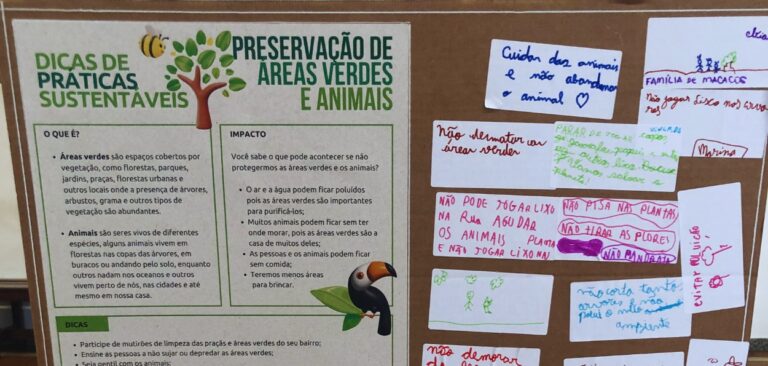 DICAS DE
PRÁTICAS
SUSTENTÁVEIS
PRESERVAÇÃO DE
ÁREAS VERDES
E ANIMAIS
O QUE É?
• Áreas verdes são espaços cobertos por
vegetação, como florestas, parques,
jardins, praças, florestas urbanas e
outros locais onde a presença de árvores,
arbustos, grama e outros tipos de
vegetação são abundantes.
• Animais são seres vivos de diferentes
espécies, alguns animais vivem em
florestas nas copas das árvores, em
buracos ou andando pelo solo, enquanto
outros nadam nos oceanos e outros
vivem perto de nós, nas cidades e até
mesmo em nossa casa.
IMPACTO
Você sabe o que pode acontecer se não
protegermos as áreas verdes e os animais?
• O ar e a água podem ficar poluídos
pois as áreas verdes são importantes
para purificá-los;
• Muitos animais podem ficar sem ter
onde morar, pois as áreas verdes são a
casa de muitos deles;
• As pessoas e os animais podem ficar
sem comida;
• Teremos menos áreas
para brincar.
DICAS
• Participe de mutirões de limpeza das praças e áreas verdes do seu bairro;
• Ensine as pessoas a não sujar ou depredar as áreas verdes;
• Seja gentil com os animais;
Cuidar dos animais
e não abandonar
o animal
FAMÍLIA DE MACACOS
Não jogar lixo nos
Marina
Não desmatar as
áreas verdes
PARAR DE
NÃO PODE JOGAR LIXO
NA RUA AGUDAR
OS ANIMAIS PLANTA
E NÃO JOGAR LIXO NA
NÃO PISA NAS PLANTAS
NÃO TIRAR AS FLORES
EVITAR POLUIÇÃO
não corta tantos
arvores e não
polui o meio
ambiente
não demorar